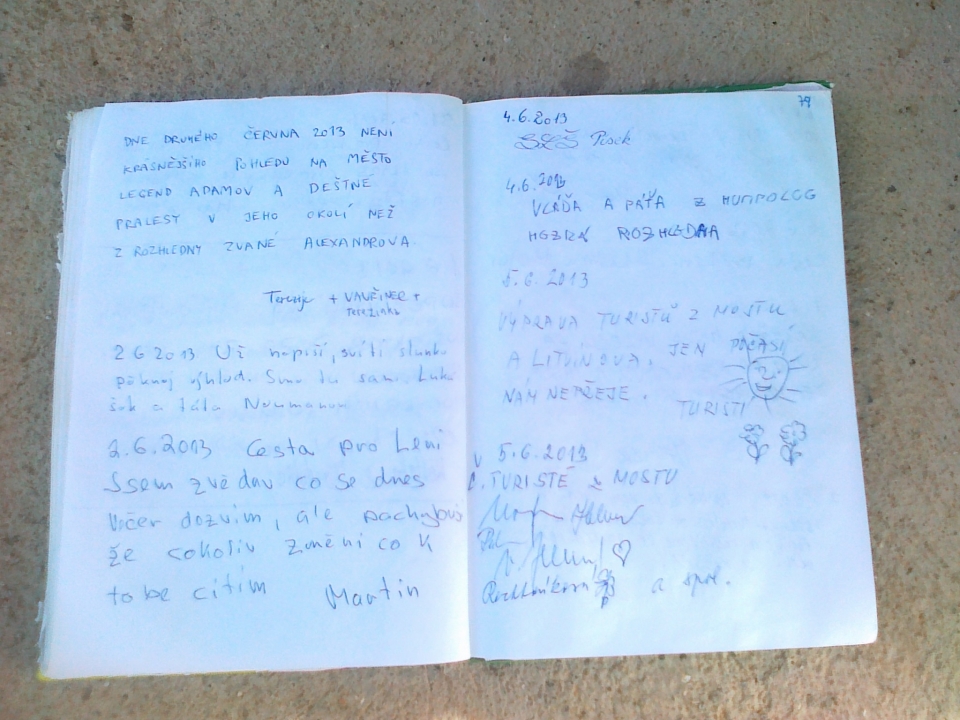 DNE DRUHÉHO ČERVNA 2013 NENÍ
KRÁSNĚJŠÍHO POHLEDU NA MĚSTO
LEGEND ADAMOV A DEŠTNÉ
PRALESY V JEHO OKOLÍ NEŽ
Z ROZHLEDNY ZVANÉ ALEXANDROVA.
+ VAVŘINEC +
Terezinka
2 6 2013 Už neprší, svítí slunko
pěknej výhled. Sme tu sami. Luká
šek a táta Neumanovi
2.6.2013 Cesta pro Leni
Jsem zvědav co se dnes
večer dozvím, ale pochybuji
že cokoliv změní co k
tobe cítím Martin
79
4.6.2013
SLŠ Písek
4.6.2013
VLÁĎA A PÁŤA Z HUMPOLCE
ROZHLEDNA
5.6.2013
VÝPRAVA TURISTŮ Z MOSTU
A LITVÍNOVA. JEN POČASÍ
NÁM NEPŘEJE.
TURISTI
5.6.2013
TURISTÉ z MOSTU
a spol.